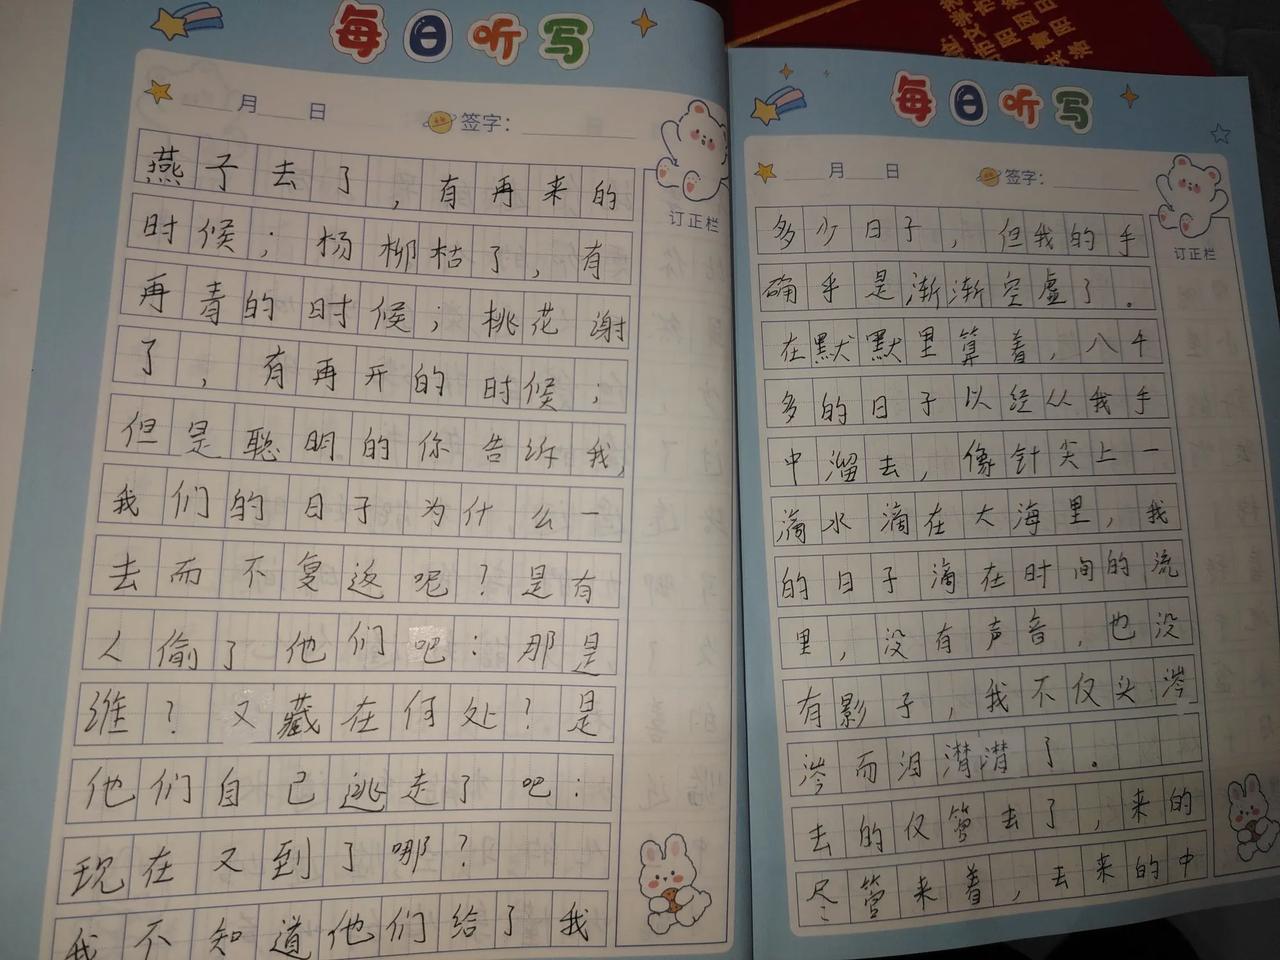 每日听写
月 日 签字：
订正栏
燕子去了，有再来的
时候；杨柳枯了，有
再青的时候；桃花谢
了，有再开的时候；
但是聪明的你告诉我，
我们的日子为什么一
去而不复返呢？是有
人偷了他们吧：那是
谁？又藏在何处？是
他们自己逃走了吧：
现在又到了哪？
我不知道他们给了我
每日听写
月 日 签字：
订正栏
多少日子，但我的手
确乎是渐渐空虚了。
在默默里算着，八千
多的日子以经从我手
中溜去，像针尖上一
滴水滴在大海里，我
的日子滴在时间的流
里，没有声音，也没
有影子，我不仅头涔
涔而泪潸潸了。
去的仅管去了，来的
尽管来着，去来的中